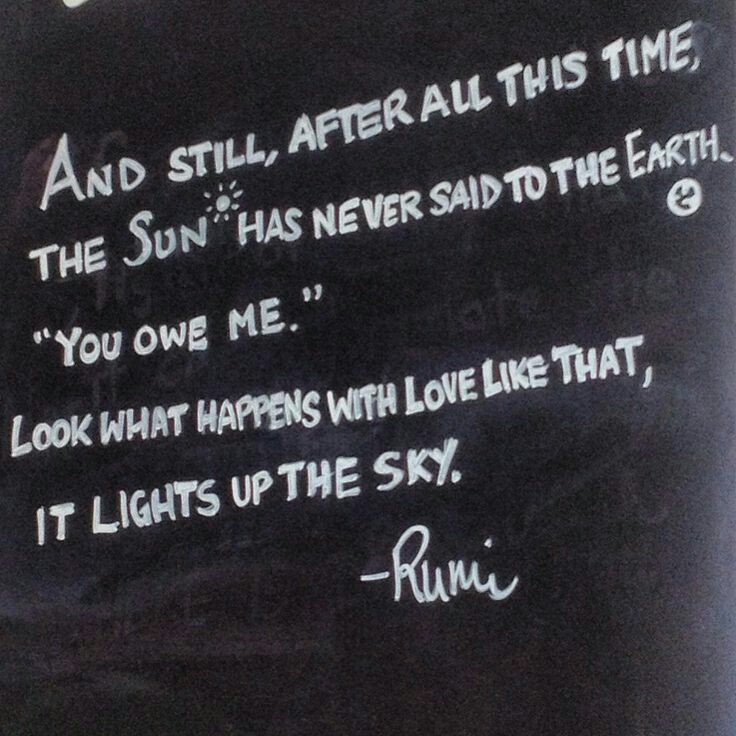 AND STILL, AFTER ALL THIS TIME,
THE SUN HAS NEVER SAID TO THE EARTH.
"YOU OWE ME."
LOOK WHAT HAPPENS WITH LOVE LIKE THAT,
IT LIGHTS UP THE SKY.
-Rumi